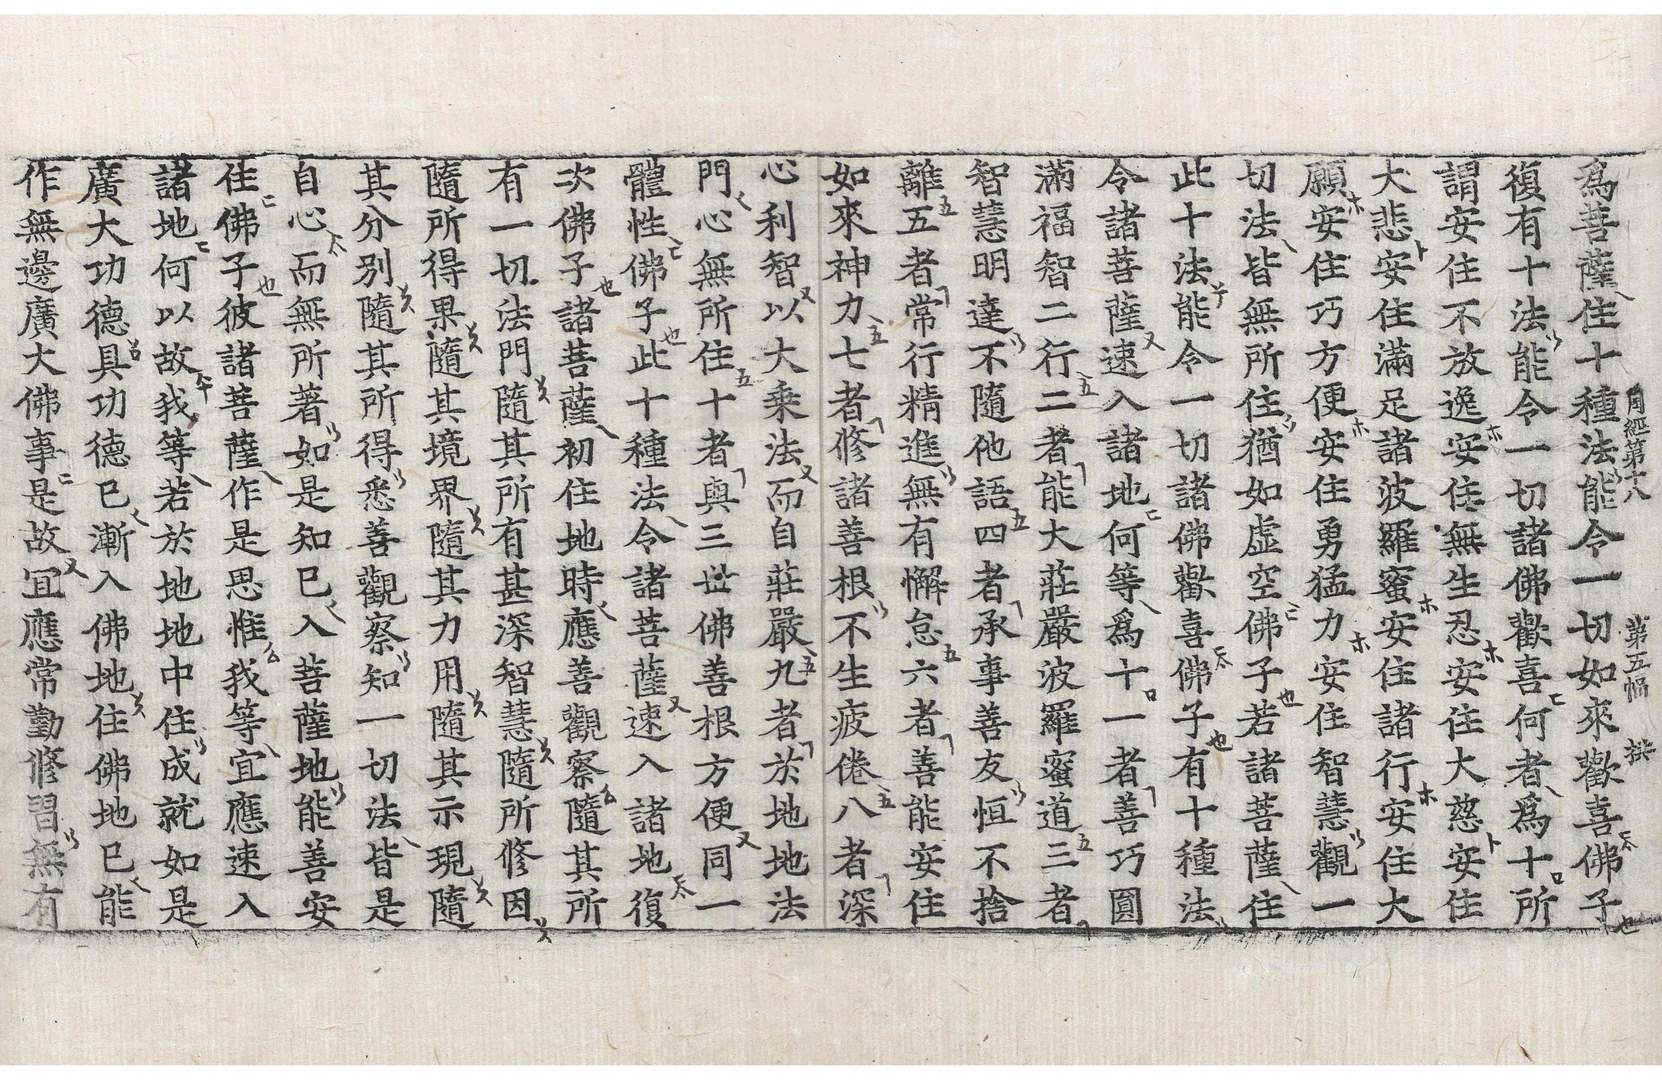 周經第十八　第五幅　拱
爲菩薩住十種法能令一切如來歡喜佛子
復有十法能令一切諸佛歡喜何者爲十所
謂安住不放逸安住無生忍安住大慈安住
大悲安住滿足諸波羅蜜安住諸行安住大
願安住巧方便安住勇猛力安住智慧觀一
切法皆無所住猶如虛空佛子若諸菩薩住
此十法能令一切諸佛歡喜佛子有十種法
令諸菩薩速入諸地何等爲十一者善巧圓
滿福智二行二者能大莊嚴波羅蜜道三者
智慧明達不隨他語四者承事善友恒不捨
離五者常行精進無有懈怠六者善能安住
如來神力七者修諸善根不生疲倦八者深
心利智以大乘法而自莊嚴九者於地地法
門心無所住十者與三世佛善根方便同一
體性佛子此十種法令諸菩薩速入諸地復
次佛子諸菩薩初住地時應善觀察隨其所
有一切法門隨其所有甚深智慧隨所修因
隨所得果隨其境界隨其力用隨其示現隨
其分別隨其所得悉善觀察知一切法皆是
自心而無所著如是知已入菩薩地能善安
住佛子彼諸菩薩作是思惟我等宜應速入
諸地何以故我等若於地地中住成就如是
廣大功德具功德已漸入佛地住佛地已能
作無邊廣大佛事是故宜應常勤修習無有